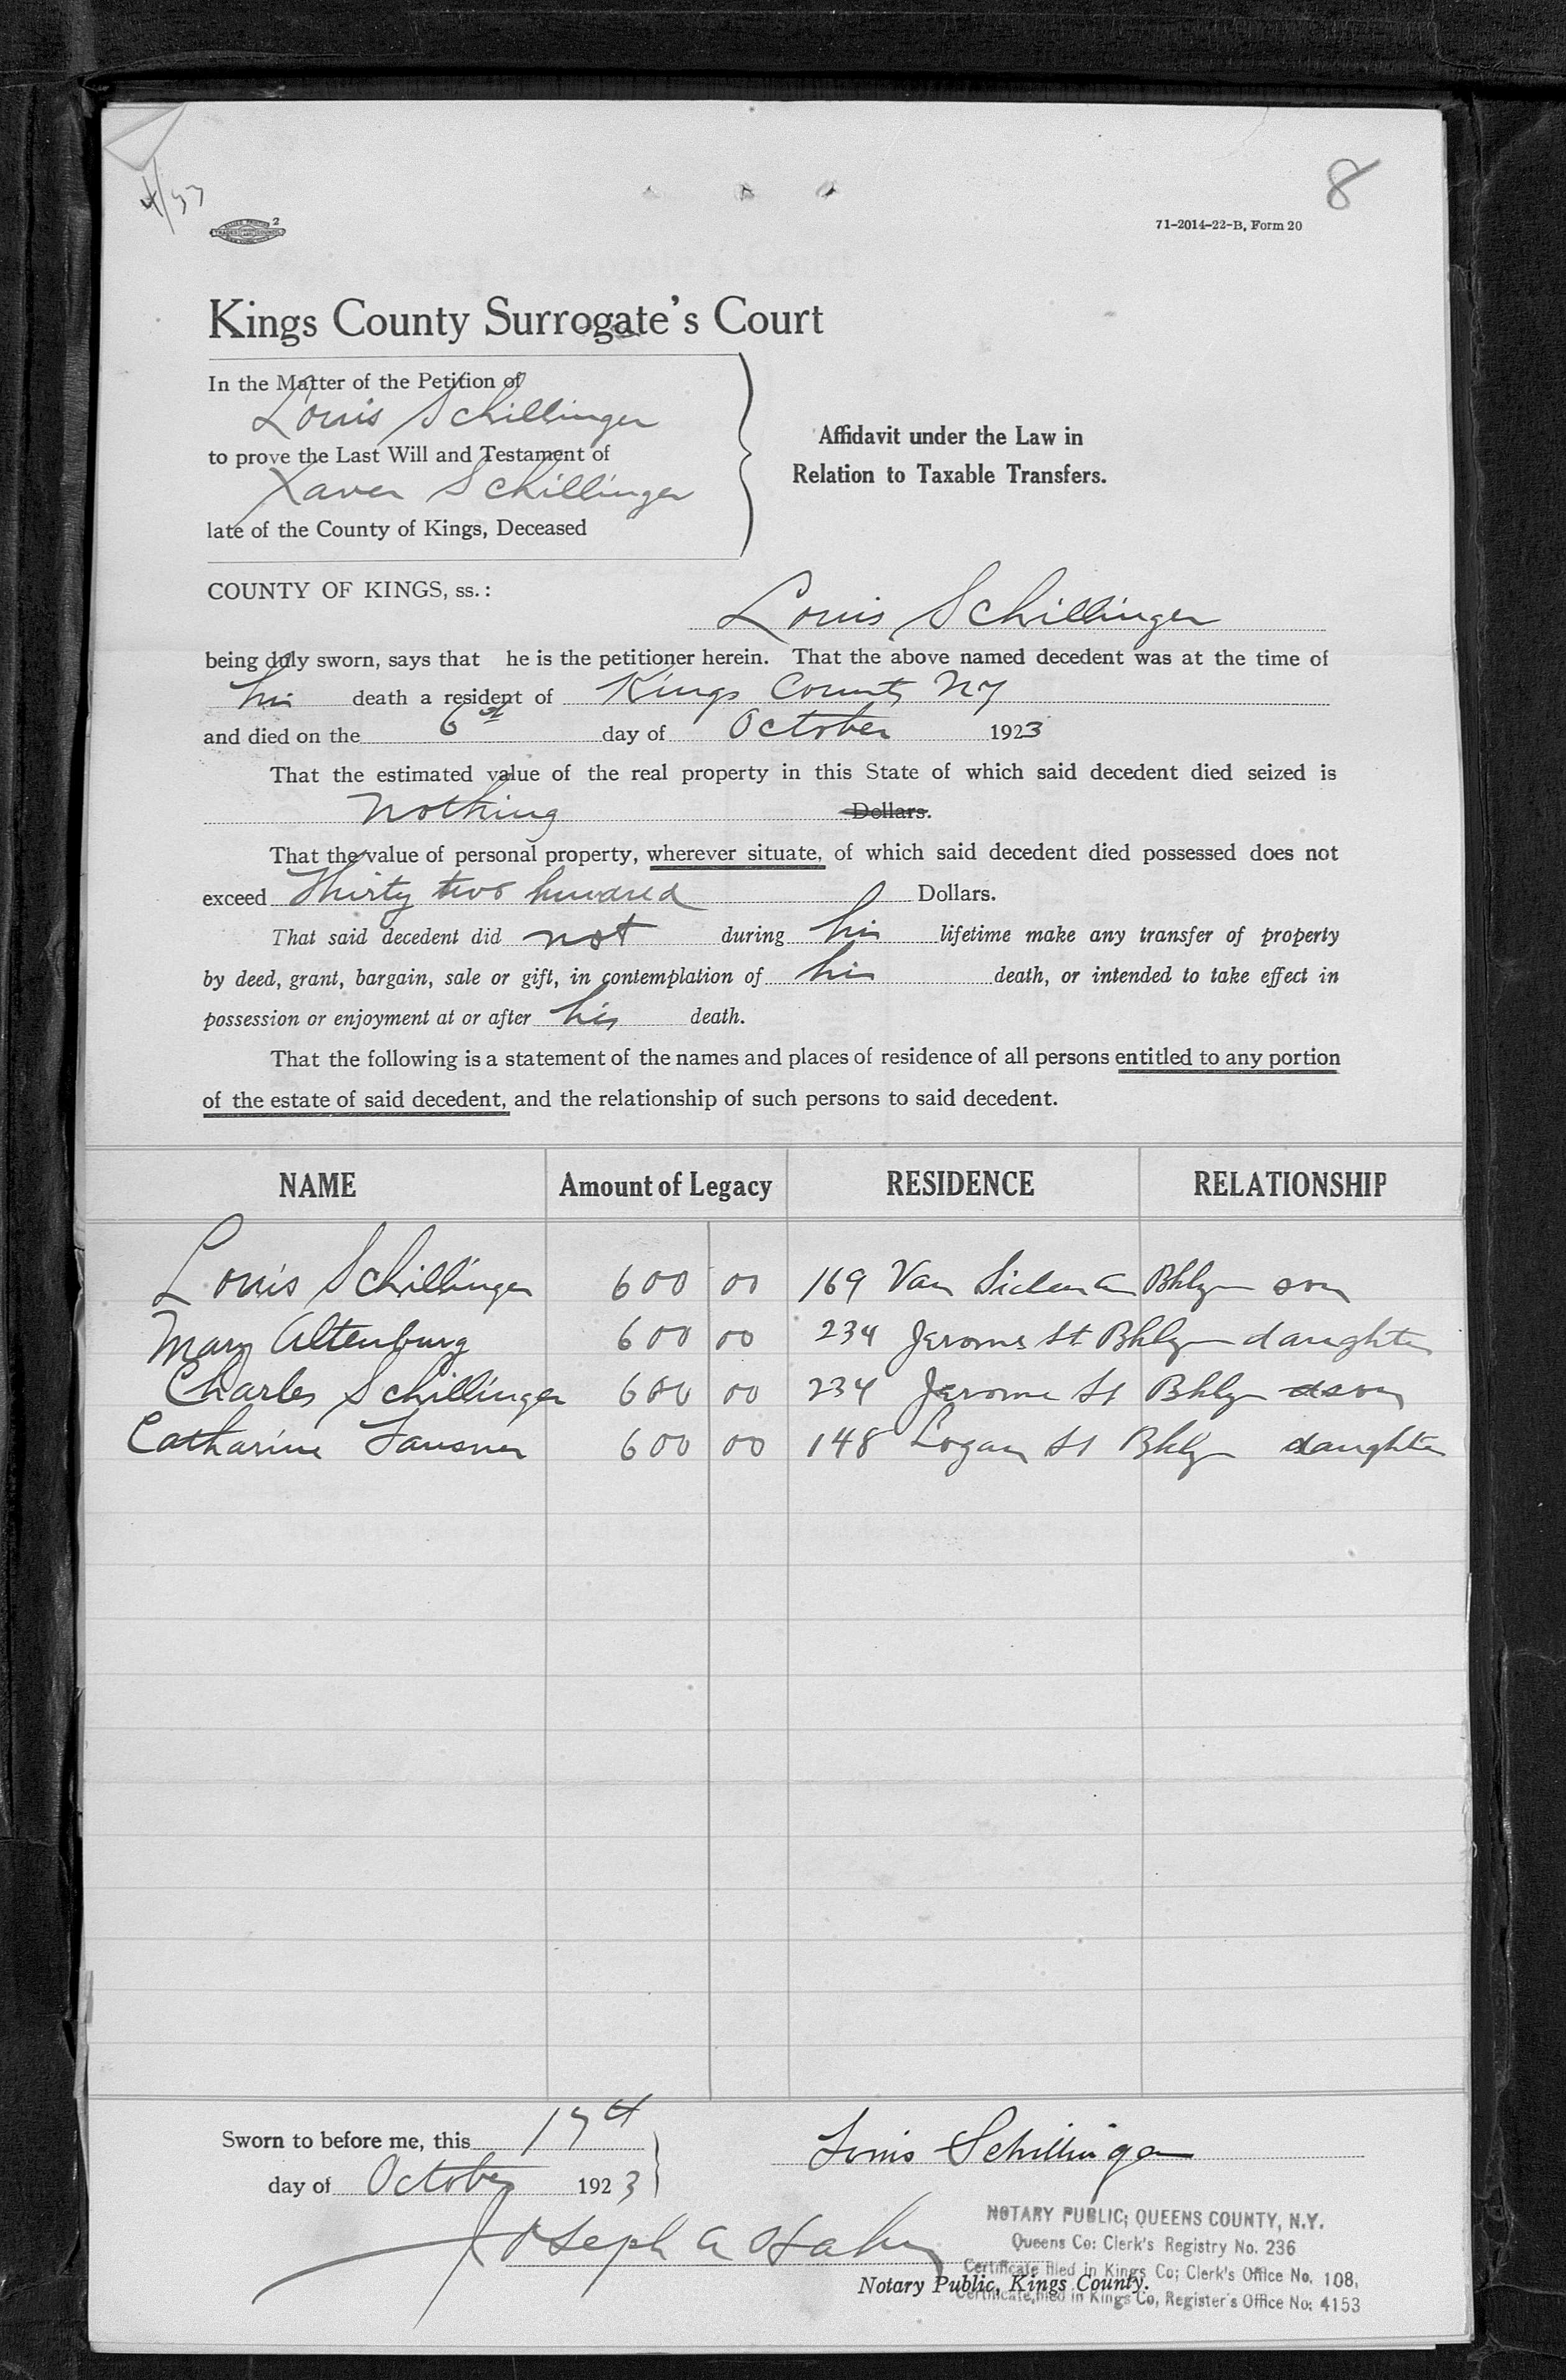 8
71-2014-22-B, Form 20
Kings County Surrogate's Court
In the Matter of the Petition of
Louis Schillinger
to prove the Last Will and Testament of
Xaver Schillinger
late of the County of Kings, Deceased
Affidavit under the Law in
Relation to Taxable Transfers.
COUNTY OF KINGS, ss.:
Louis Schillinger
being duly sworn, says that he is the petitioner herein. That the above named decedent was at the time of
his death a resident of Kings County NY
and died on the 6th day of October 1923
That the estimated value of the real property in this State of which said decedent died seized is
nothing Dollars.
That the value of personal property, wherever situate, of which said decedent died possessed does not
exceed Thirty two hundred Dollars.
That said decedent did not during his lifetime make any transfer of property
by deed, grant, bargain, sale or gift, in contemplation of his death, or intended to take effect in
possession or enjoyment at or after his death.
That the following is a statement of the names and places of residence of all persons entitled to any portion
of the estate of said decedent, and the relationship of such persons to said decedent.
NAME Amount of Legacy RESIDENCE RELATIONSHIP
Louis Schillinger 600 00 169 Van Siclen Bklyn son
Mary Altenburg 600 00 234 Jerome St Bklyn daughter
Charles Schillinger 600 00 234 Jerome St Bklyn son
Catharine 600 00 148 Logan St Bklyn daughter
Sworn to before me, this 17th
day of October 1923
Louis Schillinger
Joseph A Hahn
Notary Public, Kings County.
NOTARY PUBLIC; QUEENS COUNTY, N.Y.
Queens Co: Clerk's Registry No. 236
Certificate filed in Kings Co; Clerk's Office No. 108,
Certificate filed in Kings Co, Register's Office No: 4153